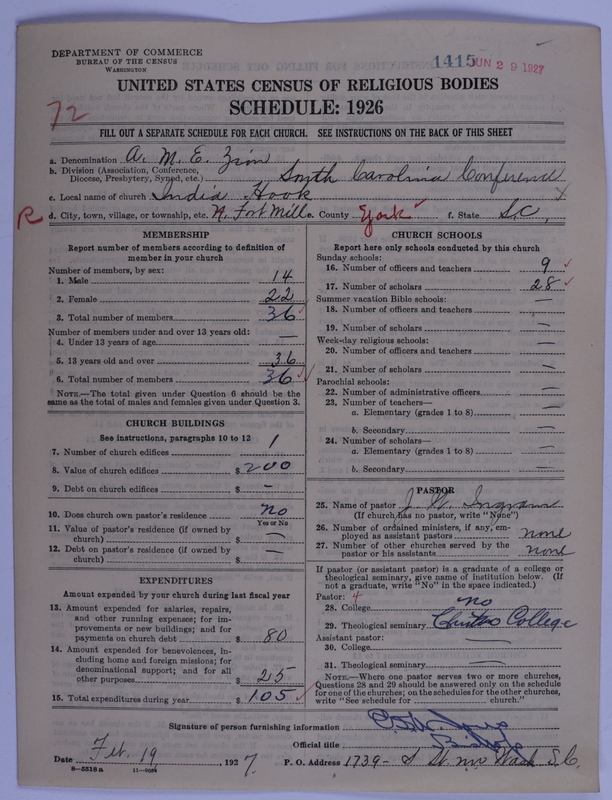 DEPARTMENT OF COMMERCE
BUREAU OF THE CENSUS
WASHINGTON
1415 JUN 29 1927
UNITED STATES CENSUS OF RELIGIOUS BODIES
SCHEDULE: 1926
72
FILL OUT A SEPARATE SCHEDULE FOR EACH CHURCH. SEE INSTRUCTIONS ON THE BACK OF THIS SHEET
a. Denomination A. M. E. Zion
b. Division (Association, Conference, Diocese, Presbytery, Synod, etc.) South Carolina Conference
c. Local name of church India Hook
R d. City, town, village, or township, etc. N. Fort Mill e. County York f. State S.C.
MEMBERSHIP
Report number of members according to definition of member in your church
Number of members, by sex:
1. Male 14
2. Female 22
3. Total number of members 36
Number of members under and over 13 years old:
4. Under 13 years of age —
5. 13 years old and over 36
6. Total number of members 36
NOTE.—The total given under Question 6 should be the same as the total of males and females given under Question 3.
CHURCH BUILDINGS
See instructions, paragraphs 10 to 12
7. Number of church edifices 1
8. Value of church edifices $ 200
9. Debt on church edifices $ —
10. Does church own pastor's residence no
Yes or No
11. Value of pastor's residence (if owned by church) $ —
12. Debt on pastor's residence (if owned by church) $ —
EXPENDITURES
Amount expended by your church during last fiscal year
13. Amount expended for salaries, repairs, and other running expenses; for improvements or new buildings; and for payments on church debt $ 80
14. Amount expended for benevolences, including home and foreign missions; for denominational support; and for all other purposes $ 25
15. Total expenditures during year $ 105
CHURCH SCHOOLS
Report here only schools conducted by this church
Sunday schools:
16. Number of officers and teachers 9
17. Number of scholars 28
Summer vacation Bible schools:
18. Number of officers and teachers —
19. Number of scholars —
Week-day religious schools:
20. Number of officers and teachers —
21. Number of scholars —
Parochial schools:
22. Number of administrative officers —
23. Number of teachers—
a. Elementary (grades 1 to 8) —
b. Secondary —
24. Number of scholars—
a. Elementary (grades 1 to 8) —
b. Secondary —
PASTOR
25. Name of pastor J. W. Ingram
(If church has no pastor, write "None")
26. Number of ordained ministers, if any, employed as assistant pastors none
27. Number of other churches served by the pastor none
If pastor (or assistant pastor) is a graduate of a college or theological seminary, give name of institution below. (If not a graduate, write "No" in the space indicated.)
Pastor: 4
28. College no
29. Theological seminary Clinton College
Assistant pastor:
30. College —
31. Theological seminary —
NOTE.—Where one pastor serves two or more churches, Questions 28 and 29 should be answered only on the schedule for one of the churches; on the schedules for the other churches, write "See schedule for church."
Signature of person furnishing information
Official title
Date Feb. 19, 1927.
P. O. Address 1739- S St. NW Wash D.C.
8—5518a 11—9084